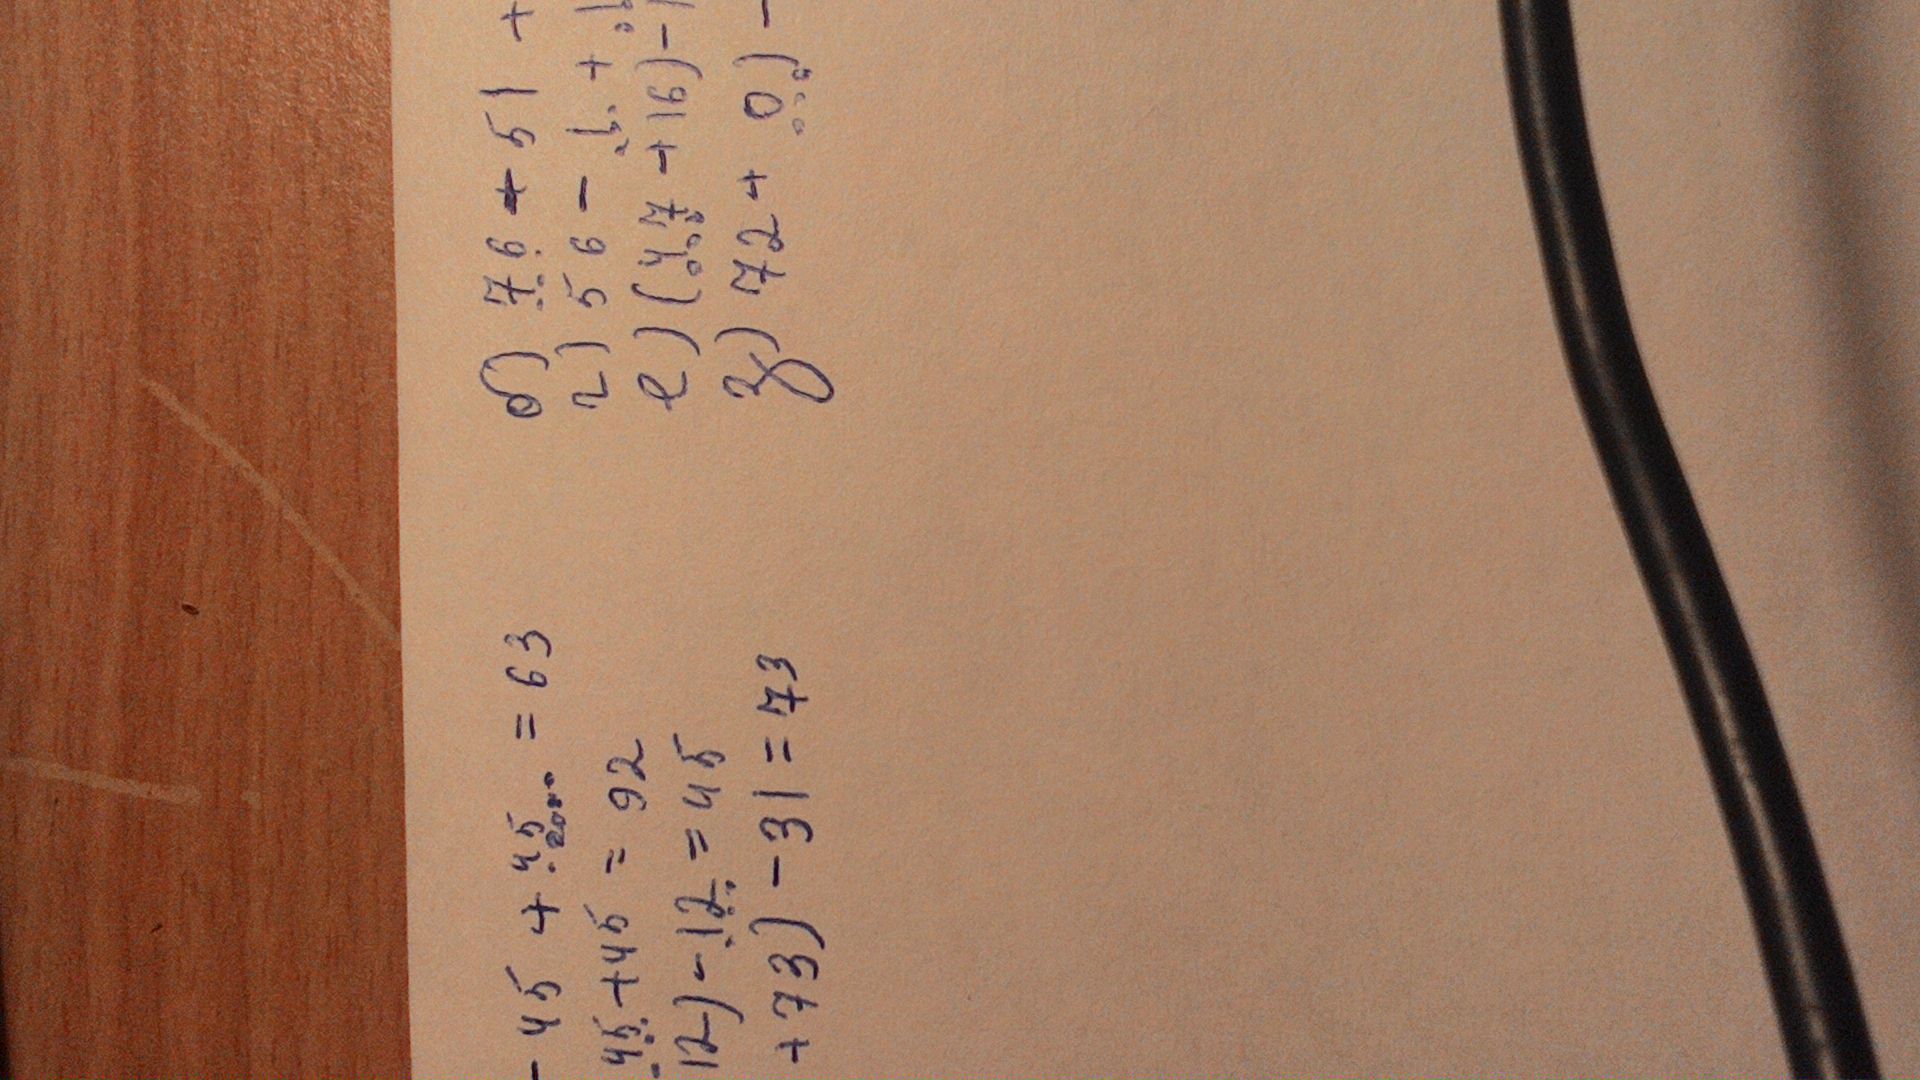 - 45 + 45 = 63
45 + 45 = 92
12) - 12 = 45
+ 73) - 31 = 73
б) 76 + 51 +
г) 56 - 1 + 1
е) (47 + 16) - 1
з) 72 + 0) -